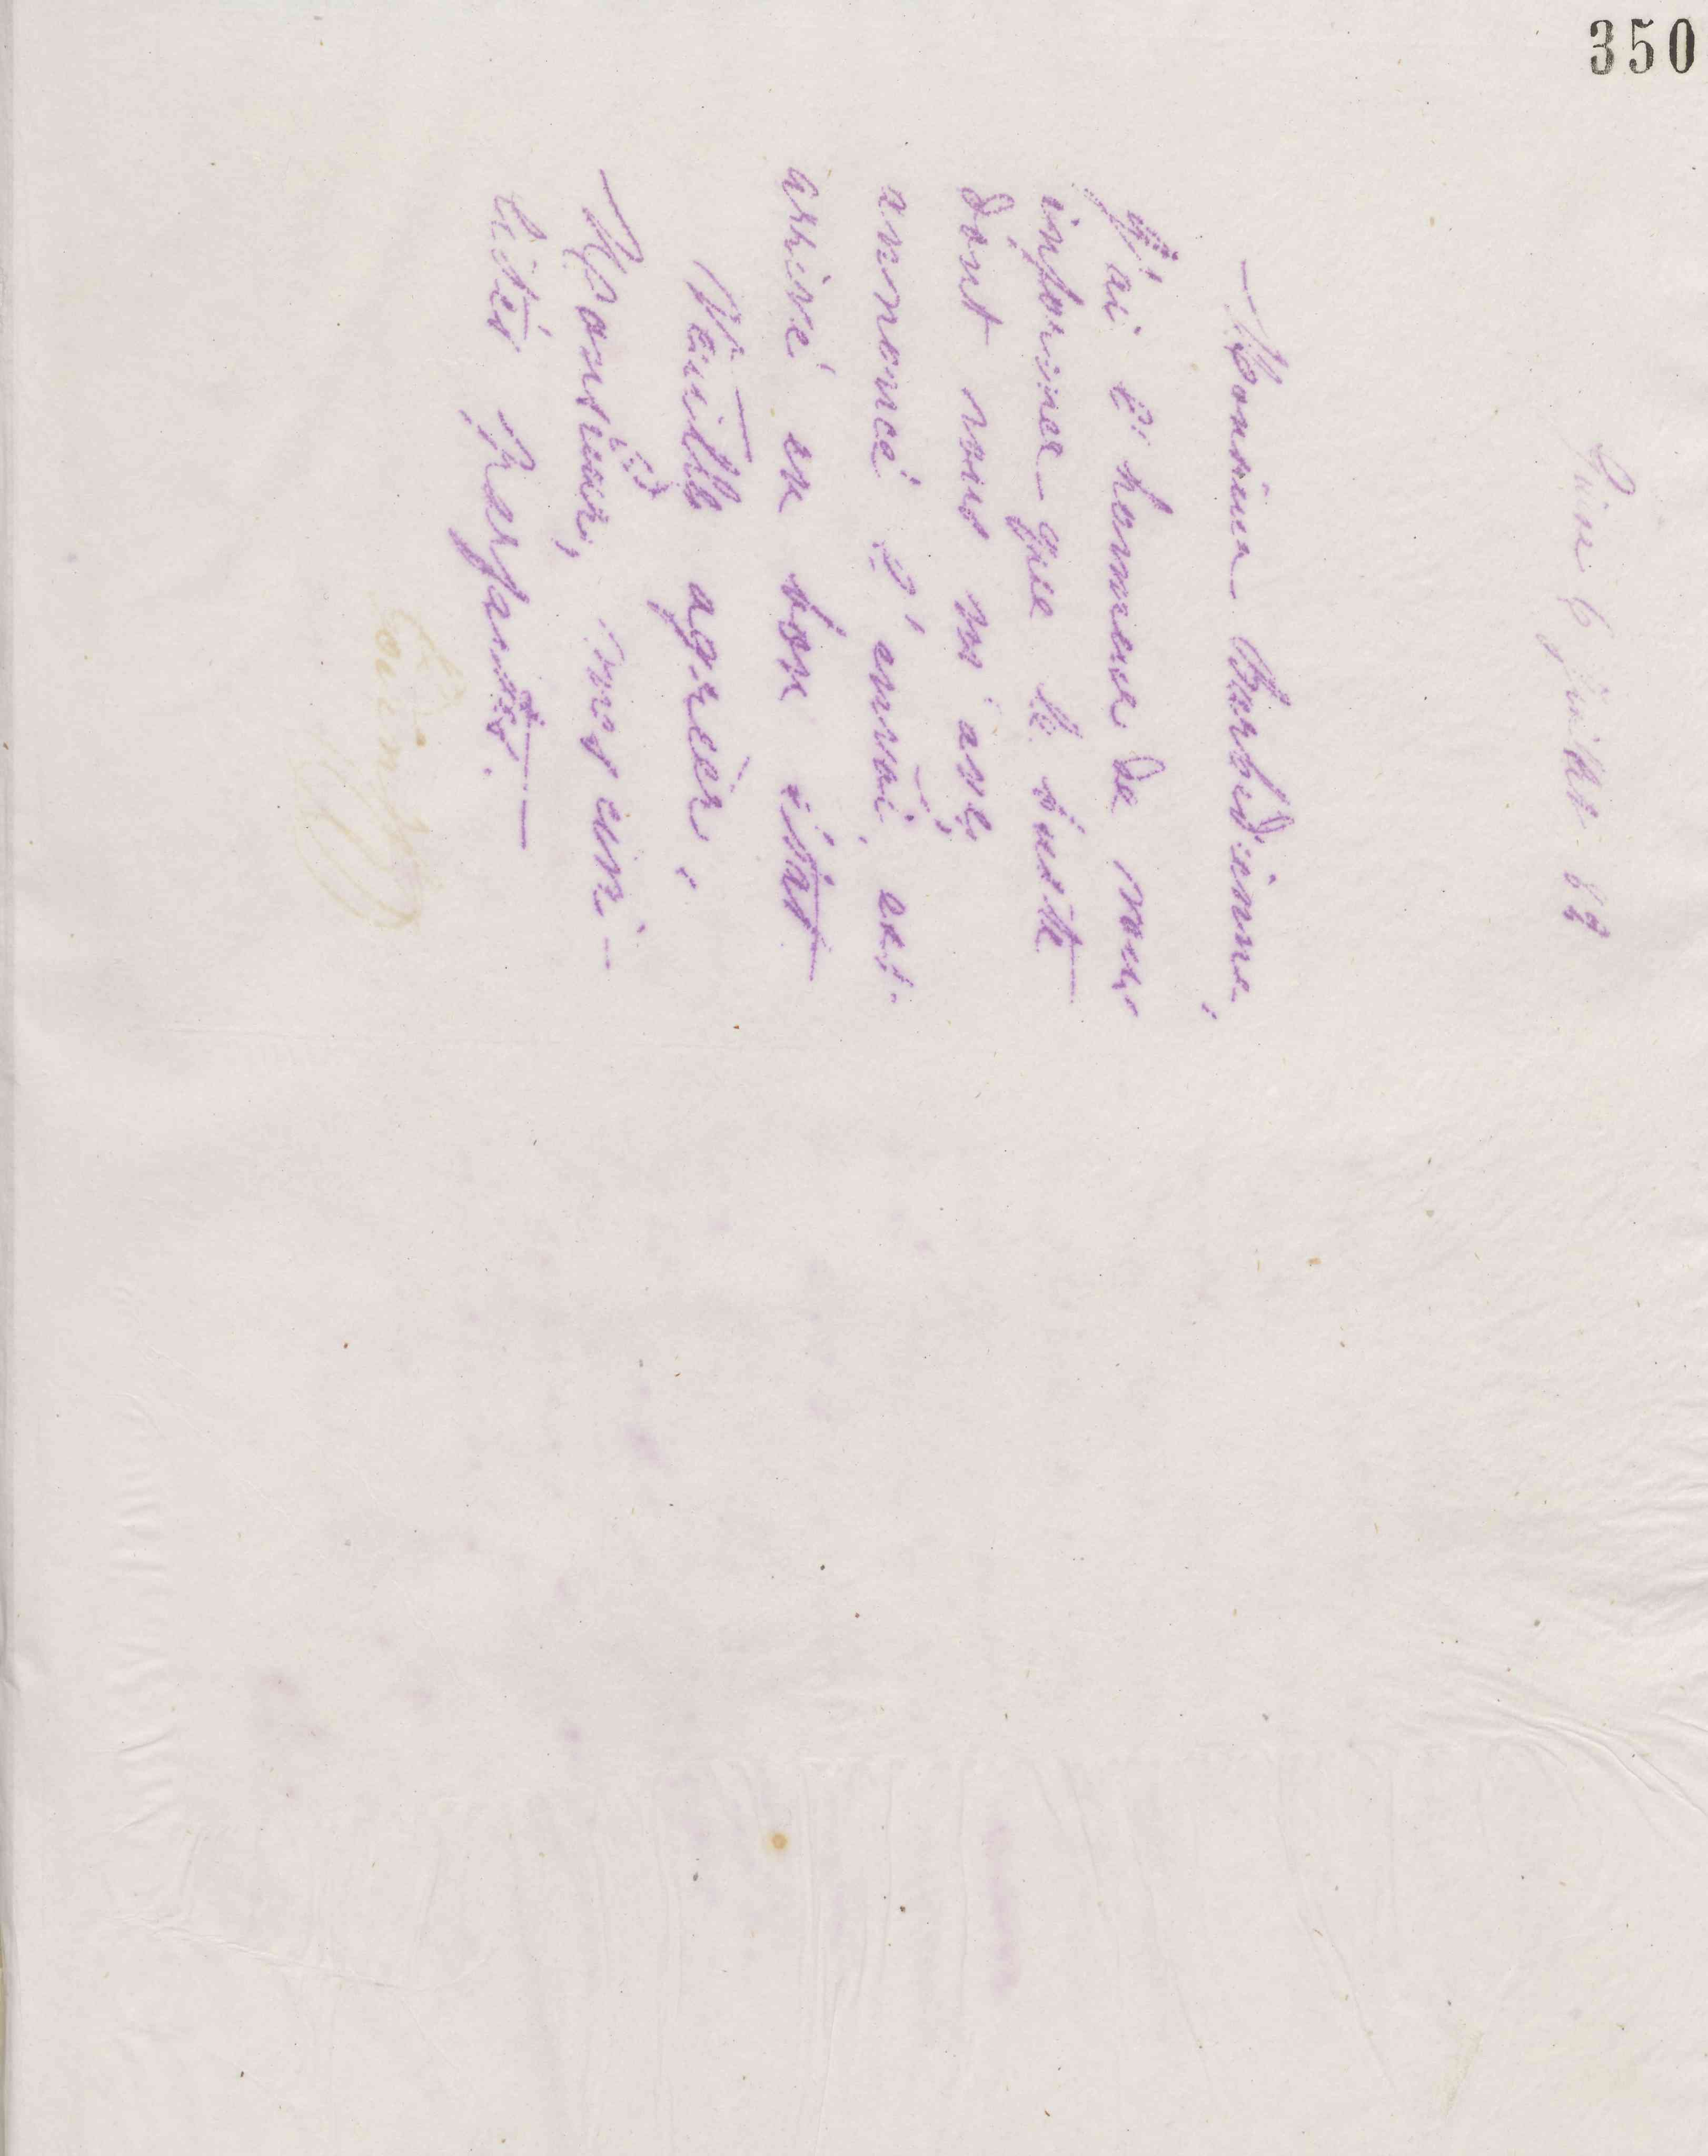 350
Guise 6 juillet 89
Monsieur Barbedienne,
J'ai l'honneur de vous
informer que le buste
dont vous m'avez
annoncé l'envoi, est
arrivé en bon état
Veuillez agréer,
Monsieur, mes civi-
lités parfaites.
Godin